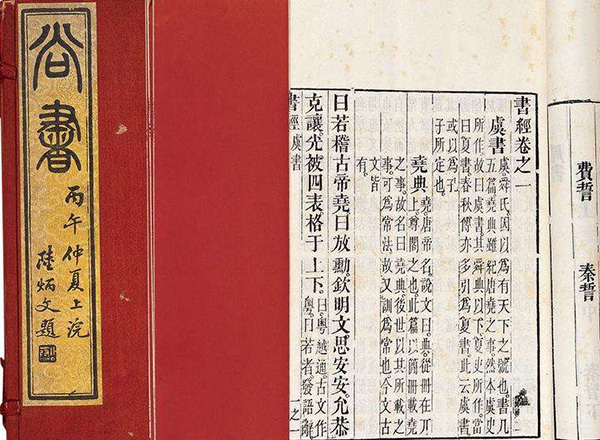 尚書
丙午仲夏上浣
陸炳文題
費誓 秦誓
書經卷之一
虞書
虞舜氏因以爲有天下之號也書凡
五篇堯典雖紀唐堯之事然本虞史
所作故曰虞書其舜典以下夏史所作當
曰夏書春秋傳亦多引爲夏書此云虞書
或以爲孔
子所定也
堯典
堯唐帝名說文曰典從冊在丌
上尊閣之也此篇以簡冊載堯
之事故名曰堯典後世以其所載之
事可爲常法故又訓爲常也今文古
文皆
有
曰若稽古帝堯曰放勳欽明文思安安允恭
克讓光被四表格于上下
曰粵越通古文作
粵曰若者發語辭
書經虞書 一之一